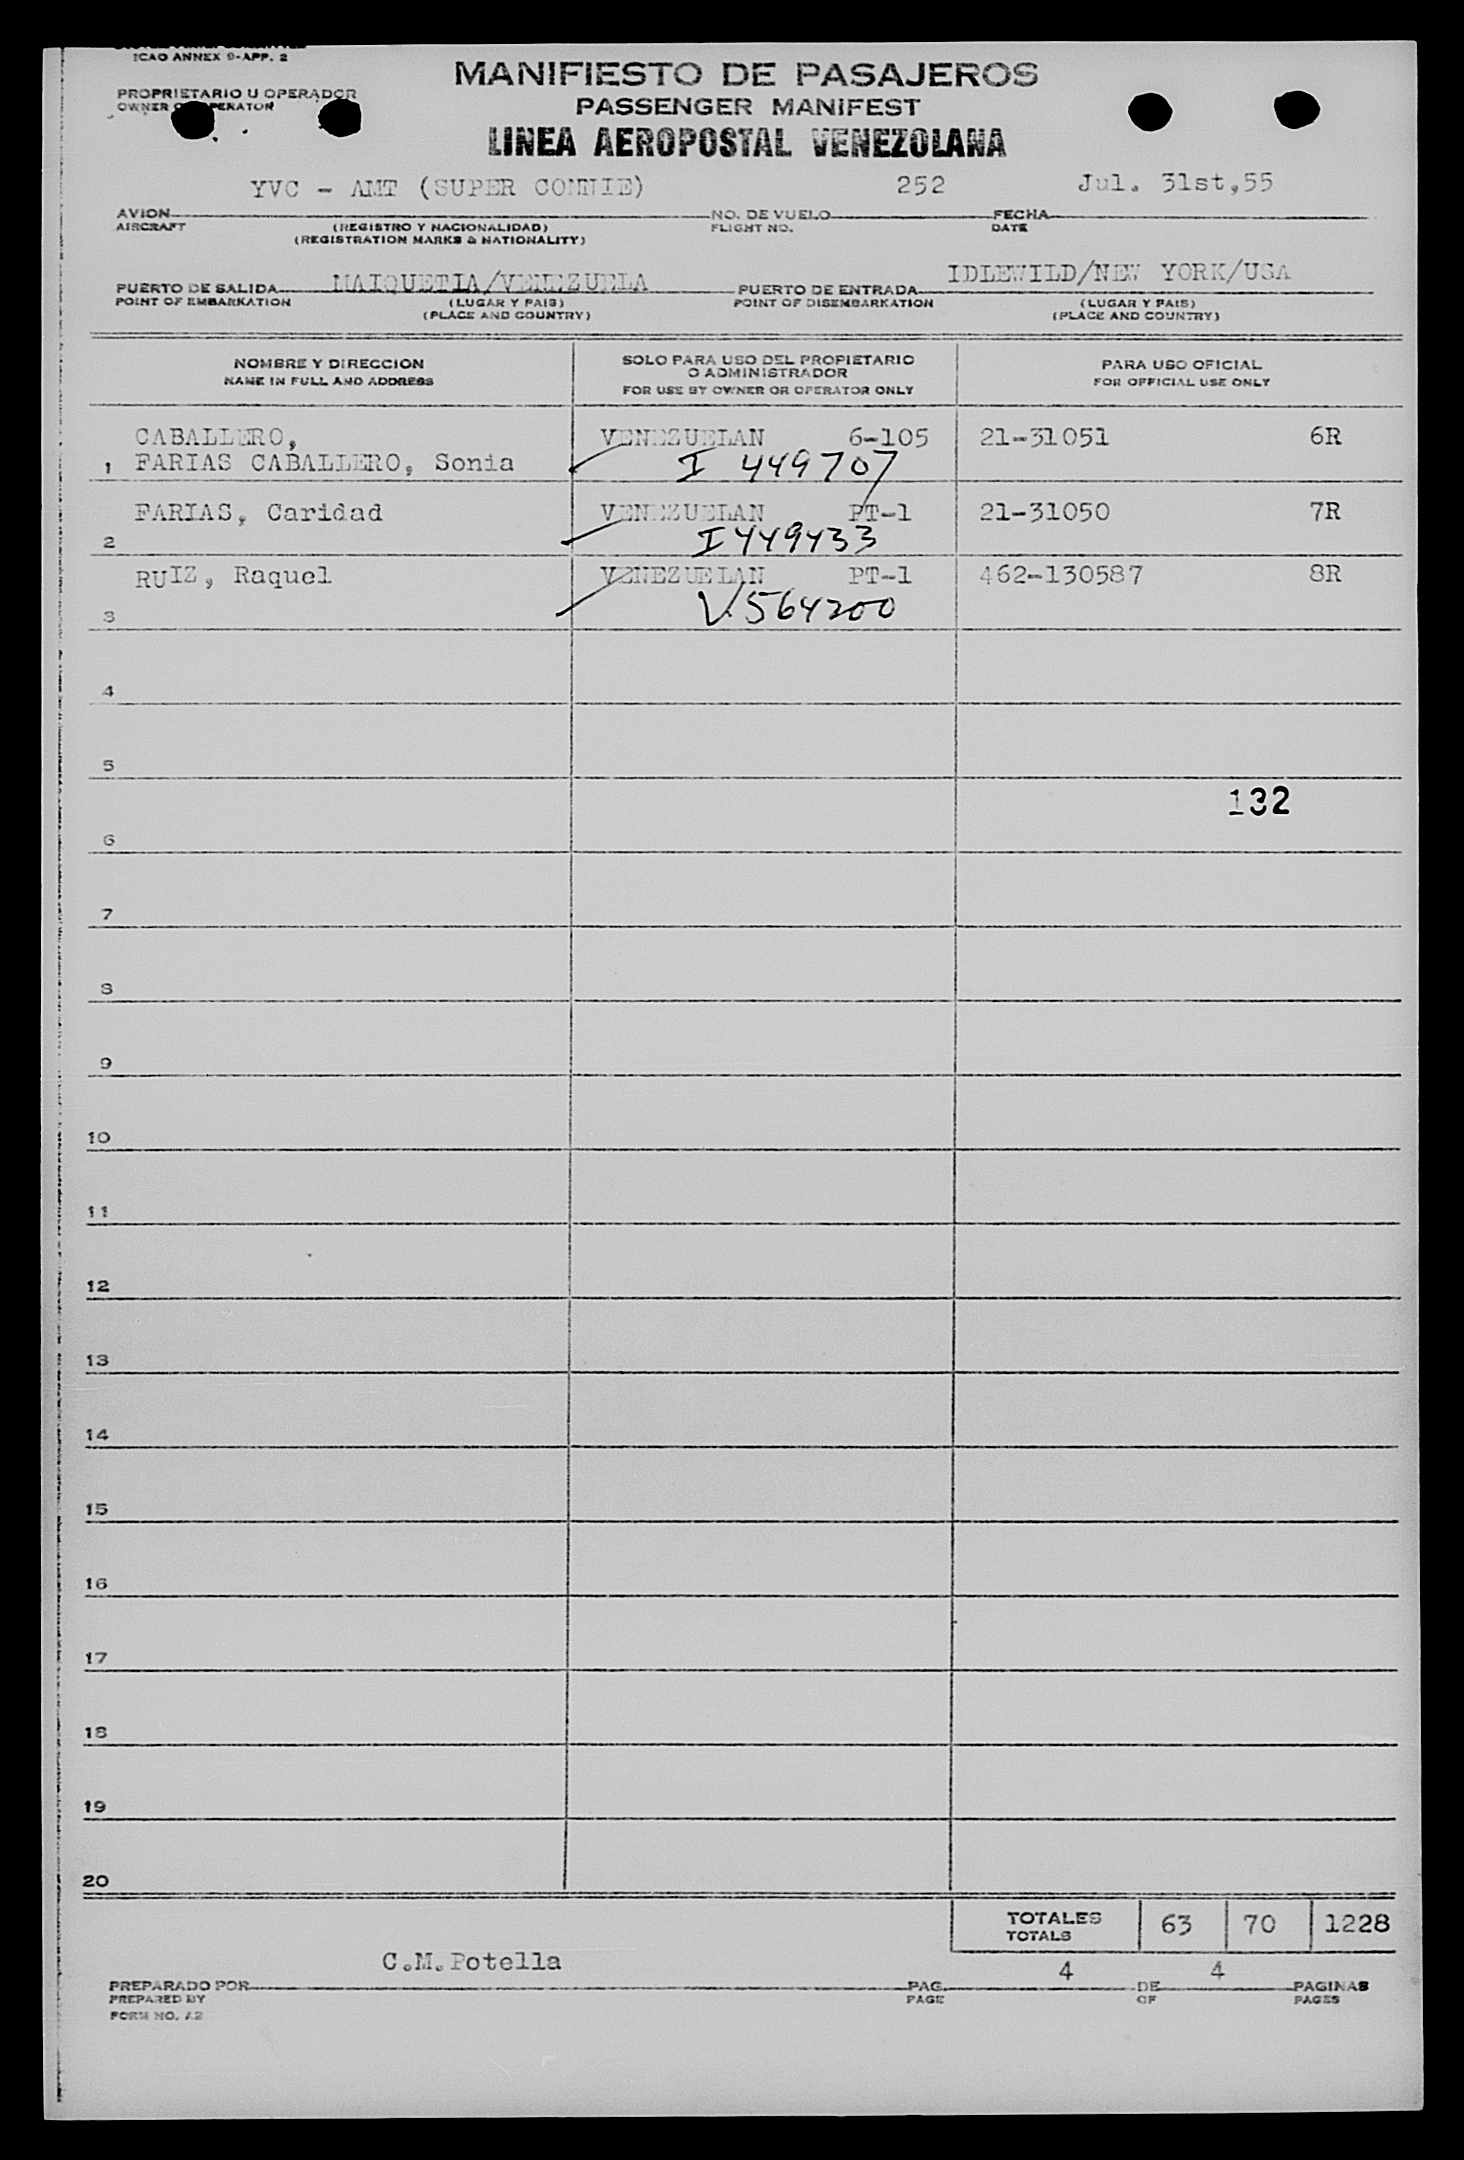 ICAO ANNEX 9-APP. 2
MANIFIESTO DE PASAJEROS
PROPRIETARIO U OPERADOR
OWNER OPERATOR
PASSENGER MANIFEST
LINEA AEROPOSTAL VENEZOLANA
YVC - AMT (SUPER CONNIE) 252 Jul. 31st,55
AVION NO. DE VUELO FECHA
AIRCRAFT (REGISTRO Y NACIONALIDAD) FLIGHT NO. DATE
(REGISTRATION MARKS & NATIONALITY)
MAIQUETIA/VENEZUELA IDLEWILD/NEW YORK/USA
PUERTO DE SALIDA PUERTO DE ENTRADA
POINT OF EMBARKATION (LUGAR Y PAIS) POINT OF DISEMBARKATION (LUGAR Y PAIS)
(PLACE AND COUNTRY) (PLACE AND COUNTRY)
NOMBRE Y DIRECCION
NAME IN FULL AND ADDRESS
SOLO PARA USO DEL PROPIETARIO
O ADMINISTRADOR
FOR USE BY OWNER OR OPERATOR ONLY
PARA USO OFICIAL
FOR OFFICIAL USE ONLY
CABALLERO, VENEZUELAN 6-105 21-31051 6R
1 FARIAS CABALLERO, Sonia I 449707
FARIAS, Caridad VENEZUELAN PT-1 21-31050 7R
2 I449433
RUIZ, Raquel VENEZUELAN PT-1 462-130587 8R
3 V.564200
4
5
132
6
7
8
9
10
11
12
13
14
15
16
17
18
19
20
TOTALES 63 70 1228
TOTALS
C.M.Potella 4 4
PREPARADO POR PAG. DE PAGINAS
PREPARED BY PAGE OF PAGES
FORM NO. A2